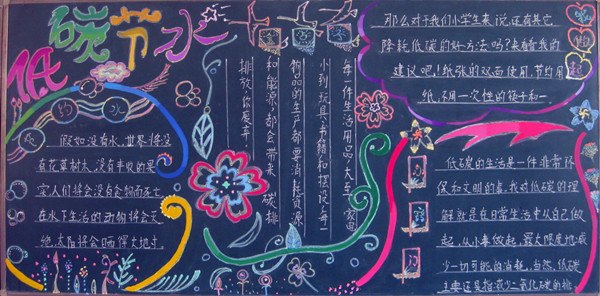 低碳节水
节约水
假如没有水,世界将没
有花草树木,没有丰收的果
实人们将会没有食物而死亡
在水下生活的动物将会灭
绝,太阳将会晒得大地
每一件生活用品,大至家电
小到玩具、书籍和摆设,每一
物品的生产都要消耗资源
和能源,都会带来碳排
排放,你愿
那么对于我们小学生来说,还有其它
降耗低碳的好方法吗?来看我的
建议吧!纸张的双面使用,节约用
纸,不用一次性的筷子和
低碳的生活是一件非常环
保和文明的事,我对低碳的理
解就是在日常生活中从自己做
起,从小事做起,最大限度地减
少一切可能的消耗,当然,低碳
主要还是指减少二氧化碳的排